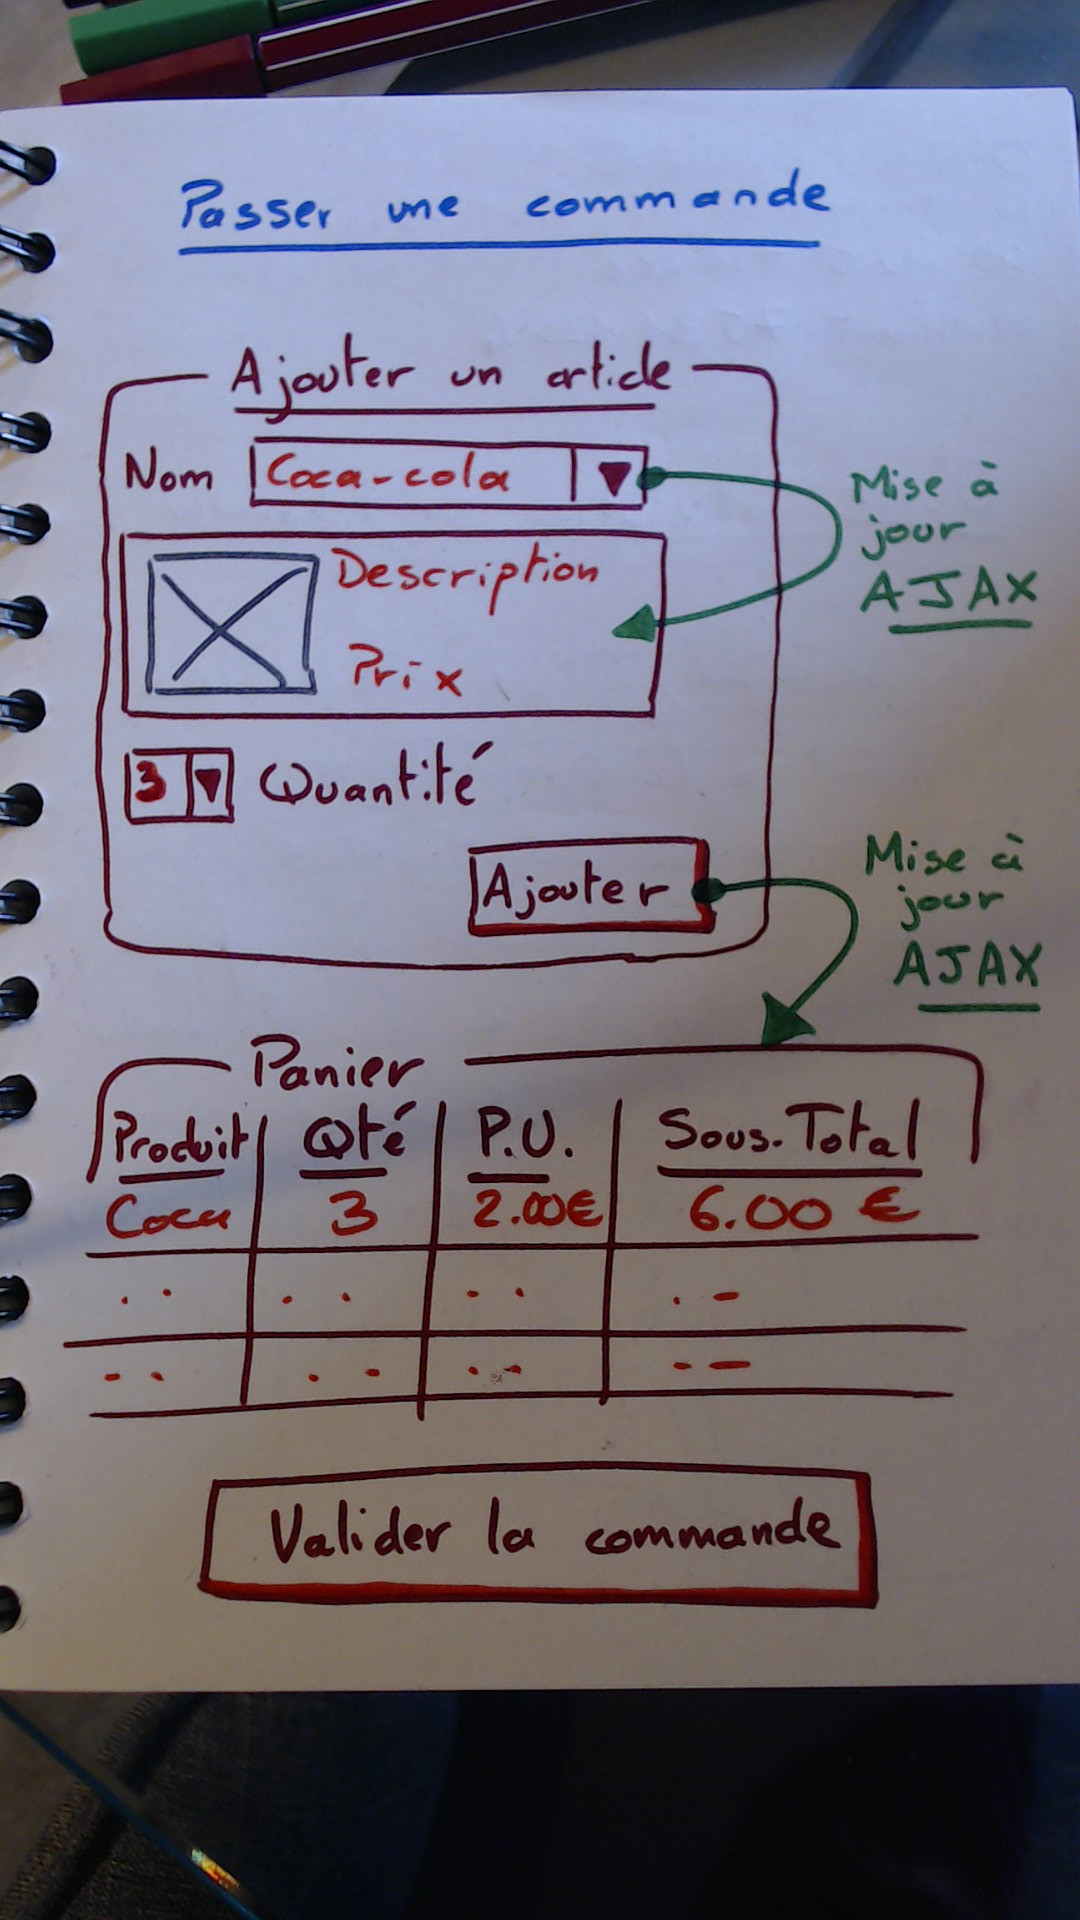 Passer une commande
Ajouter un article
Nom Coca-cola
Mise à
jour
AJAX
Description
Prix
3 Quantité
Ajouter
Mise à
jour
AJAX
Panier
Produit Qté P.U. Sous-Total
Coca 3 2.00€ 6.00 €
Valider la commande